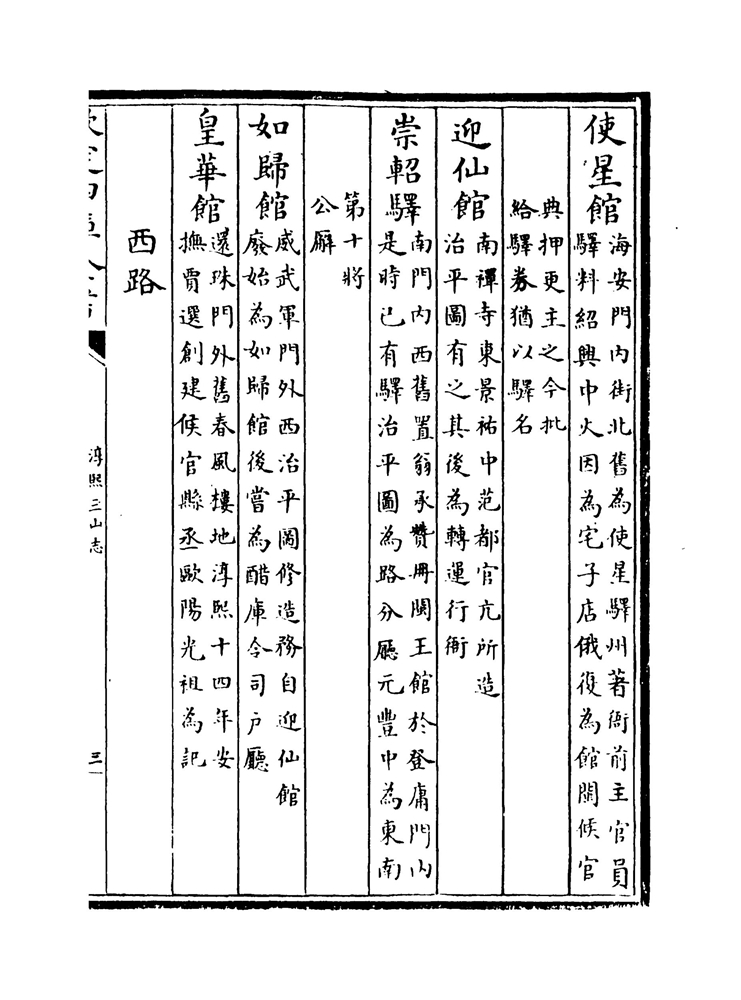 使星館海安門内街北舊為使星驛州著衙前主官員
驛料紹興中火因為宅子店俄復為館閩候官
典押更主之今批
給驛券猶以驛名
迎仙館南禪寺東景祐中范都官亢所造
治平圖有之其後為轉運行衙
崇軺驛南門内西舊置翁承贊冊閩王館於登庸門内
是時已有驛治平圖為路分廳元豐中為東南
第十將
公廨
如歸館威武軍門外西治平圖修造務自迎仙館
廢始為如歸館後嘗為醋庫今司户廳
皇華館還珠門外舊春風樓地淳熙十四年安
撫賈選創建候官縣丞歐陽光祖為記
西路
淳熙三山志